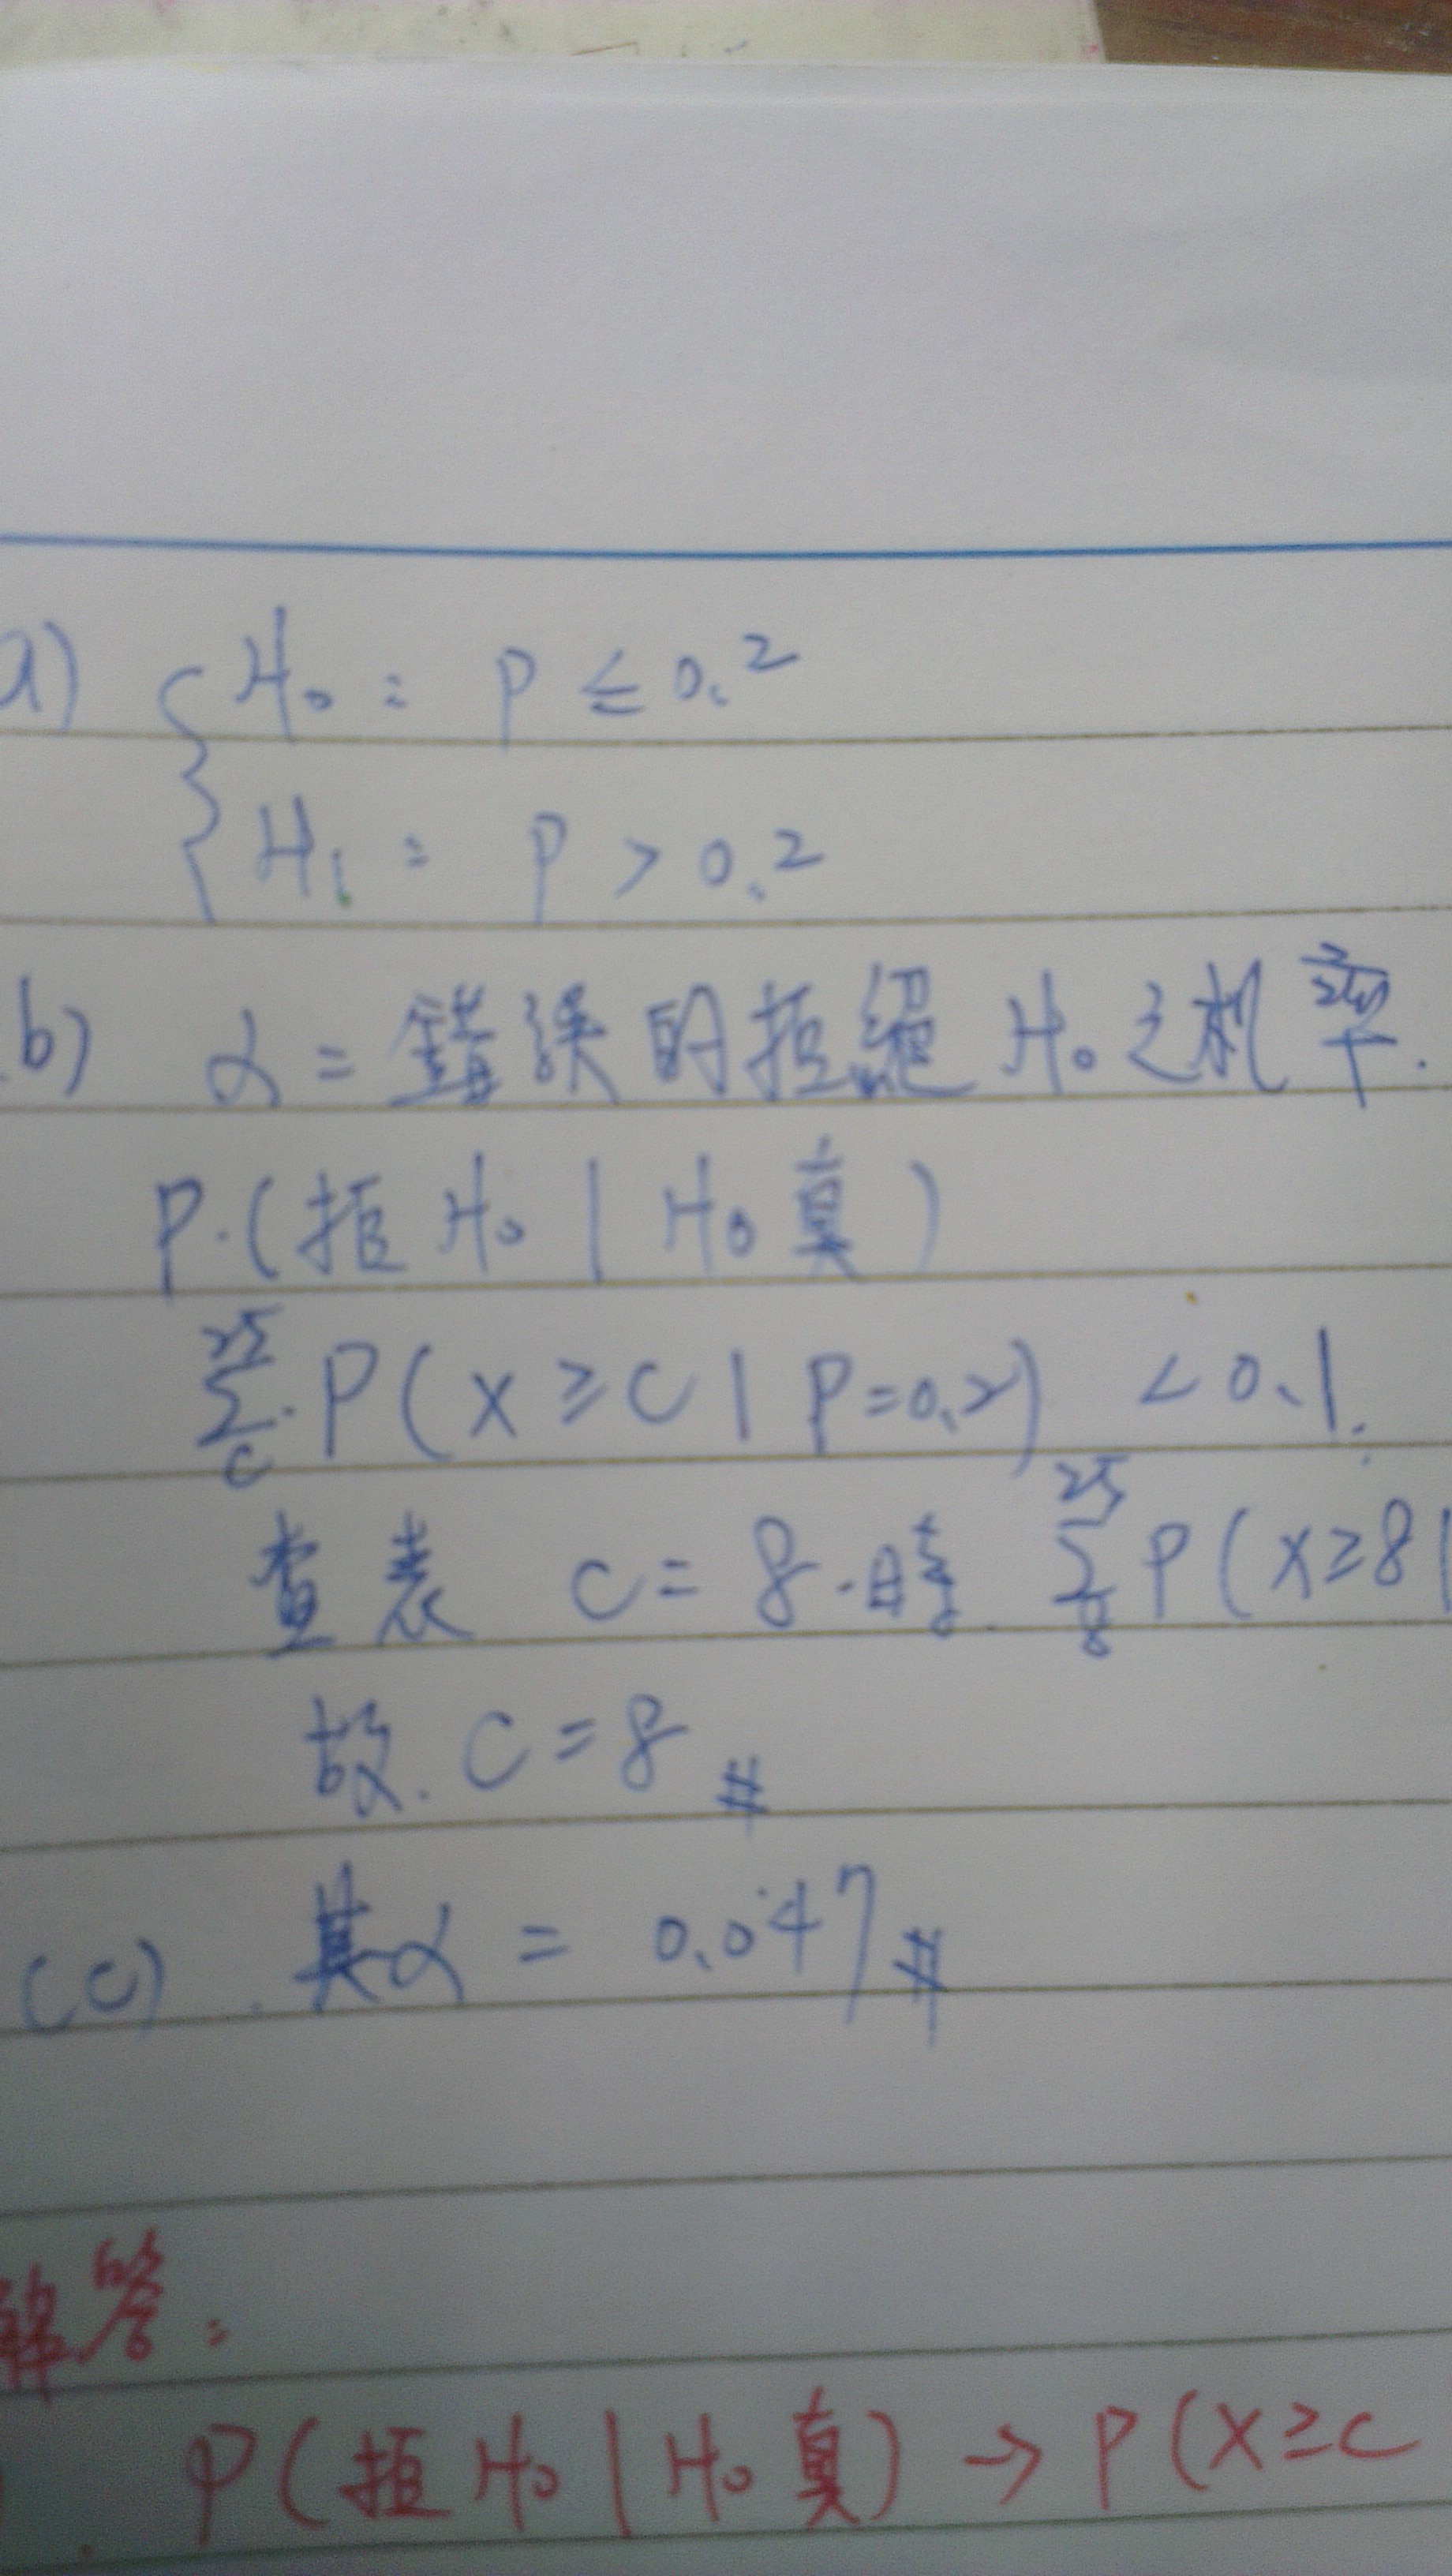 a) { H₀ : P ≤ 0.2
H₁ : P > 0.2
b) α = 錯誤的拒絕 H₀ 之机率.
P.(拒 H₀ | H₀ 真)
25 Σ c . P(x ≥ c | P = 0.2) < 0.1.
查表 c = 8. 時. 25 Σ 8 P(x ≥ 8 |
故. c = 8 #
(c) . 其α = 0.047 #
解答:
P(拒 H₀ | H₀ 真) → P(x ≥ c